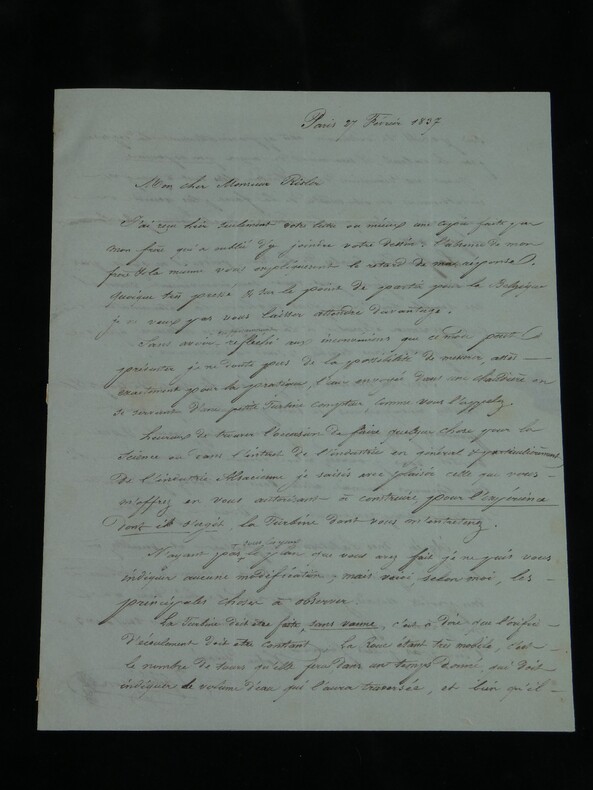 Paris 27 Février 1837
Mon cher Monsieur
J'ai reçu bien seulement votre lettre ou mieux une copie faite par
mon frère qui a oublié d'y joindre votre dessin; l'absence de mon
frère & la mienne vous expliqueront le retard de ma réponse.
Quoique très pressé & sur le point de partir pour la Belgique
je ne veux pas vous laisser attendre davantage.
Sans avoir réfléchi aux inconvéniens que celà peut
présenter je ne doute pas de la possibilité de mesurer, assez
exactement pour la pratique l'eau envoyée dans une chaudière en
se servant d'une petite Turbine compteur, comme vous l'appelez.
Heureux de trouver l'occasion de faire quelque chose pour la
Science ou dans l'intérêt de l'industrie en général & particulièrement
de l'industrie Alsacienne je saisis avec plaisir celle que vous
m'offrez en vous autorisant à construire pour l'expérience
dont il s'agit, la Turbine dont vous m'entretenez.
N'ayant pas le plan que vous avez fait je ne puis vous
indiquer aucune modification; mais voici, selon moi, les
principales choses à observer
La Turbine doit être faite, sans vanne, c'est à dire que l'orifice
d'écoulement doit être constant. La Roue étant très mobile, c'est
le nombre de tours qu'elle fera dans un temps donné, qui doit
indiquer le volume d'eau qui l'aura traversée, et bien qu'il